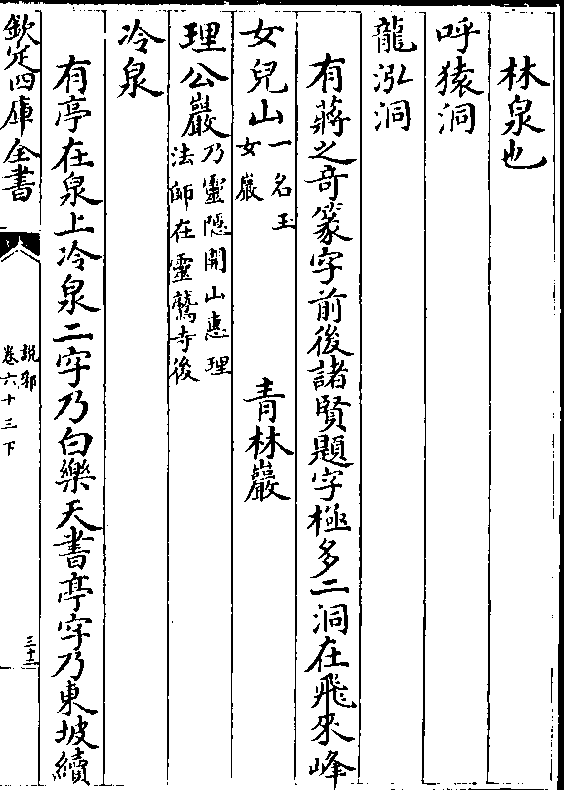 林泉也
呼猿洞
龍泓洞
有蔣之奇篆字前後諸賢題字極多二洞在飛來峰
女兒山一名玉
女巖
青林巖
理公巖乃靈隱開山惠理
法師在靈鷲寺後
冷泉
有亭在泉上冷泉二字乃白樂天書亭字乃東坡續
欽定四庫全書
說郛
卷六十三下
三十二